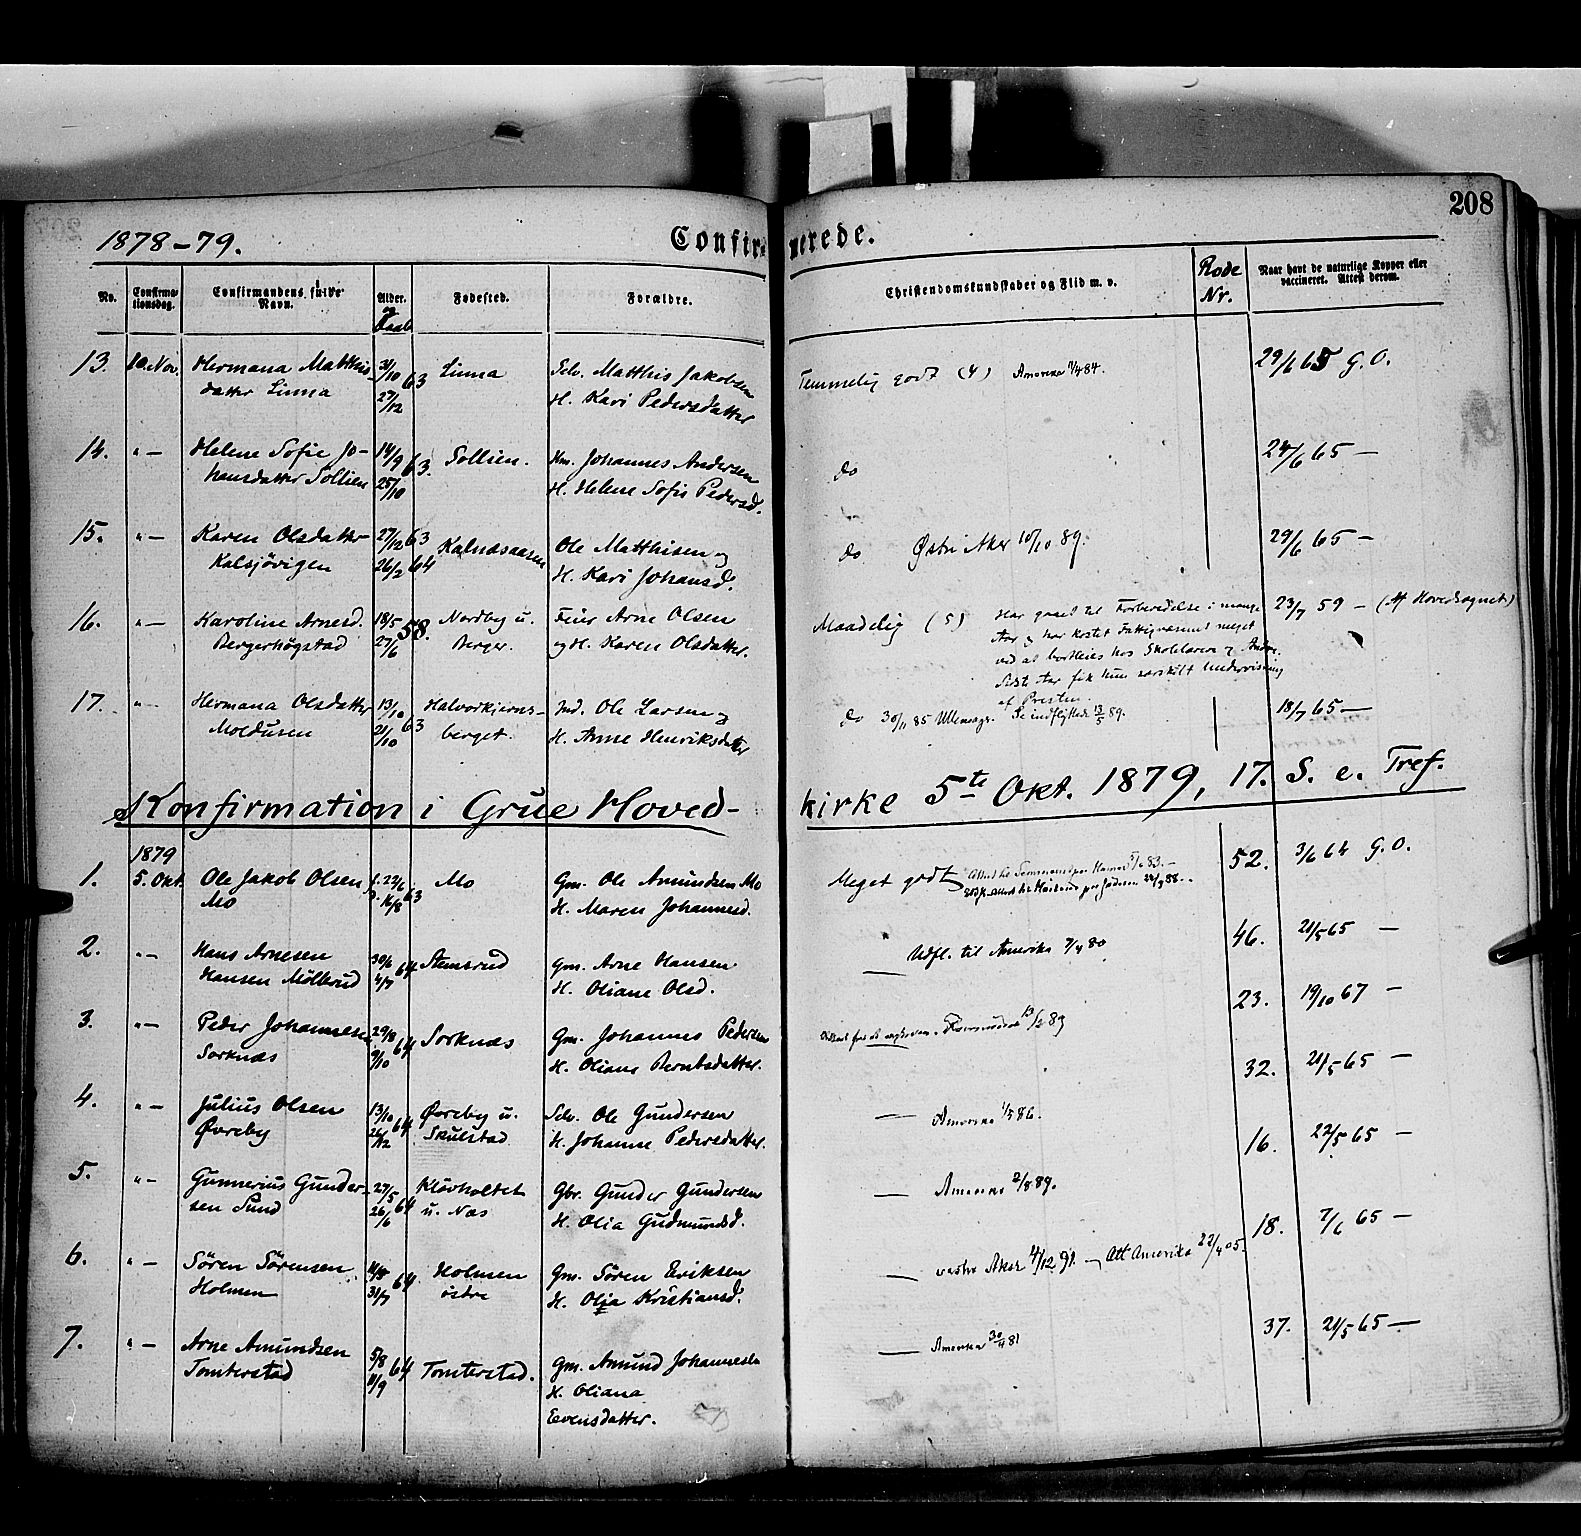 208
1878-79.
Confirmerede.
No.
Confirmationsdag.
Confirmandens fulde Navn.
Alder. og Daab
Fødested.
Forældre.
Christendomskundskaber og Flid m. v.
Rode Nr.
Naar havt de naturlige Kopper eller vaccineret. Attest derom.
13. 10. Nov. Hermana Matthis- 31/10 63 Linna Selv. Matthis Jakobsen Temmelig godt (4) Amerika 11/4 84. 29/6 65 G. O.
datter Linna 27/12 H. Kari Pedersdatter
14. "— Helene Sofie Jo- 14/9 63. Sollien. Hm. Johannes Andersen do 24/6 65 —
hansdatter Sollien 25/10 H. Helene Sofie Pedersd.
15. "— Karen Olsdatter 27/12 63 Kalnæsaasen Ole Matthisen og do Østre Aker 10/10 89. 29/6 65 —
Kalsjövigen 26/2 64 H. Kari Johansd.
16. "— Karoline Arnesd. 18/5 58. Nordby u. Feier Arne Olsen Maadelig (5) Har gaaet til Forberedelse i mange 23/7 59 — (Af Hovedsognet)
Bergerhögstad 27/6 Berger. og H. Karen Olsdatter. Aar og har kostet Fattigvæsenet meget
ved at bortleies hos Skolelærere og Andre.
Sidste Aar fik hun særskilt Undervisning
af Presten.
17. "— Hermana Olsdatter 13/10 63 Halvorkjerns- Ind. Ole Larsen og do 30/11 85 Ullensager. Se indflyttede 13/5 89. 18/7 65 —
Moldusen 21/10 berget. H. Anne Henriksdatter
Konfirmation i Grue Hovedkirke 5te Okt. 1879, 17. S. e. Tref.
1879
1. 5. Okt. Ole Jakob Olsen f. 22/6 63 Mo Gm. Ole Amundsen Mo Meget godt 52. 3/6 64 G. O.
Mo 16/8 H. Maren Johannesd.
2. "— Hans Arnesen 30/6 64 Stemsrud Gm. Arne Hansen — Udfl. til Amerika 7/4 80 46. 21/5 65 —
Hansen Mölbrud 4/7 H. Oliane Olsd.
3. "— Peder Johannesen 29/8 64 Sorknæs Gm. Johannes Pedersen 13/2 89 23. 19/10 67 —
Sorknæs 9/10 H. Oliane Berntsdatter.
4. "— Julius Olsen 13/10 64 Øvreby u. Selv. Ole Gundersen — Amerika 1/5 86. 32. 21/5 65 —
Øvreby 26/12 Skulstad H. Johanne Pedersdatter.
5. "— Gunnerius Gunder- 27/5 64 Kløvholtet Gbr. Gunder Gundersen — Amerika 2/8 89. 16. 22/5 65 —
sen Sund 26/6 u. Næs H. Olia Gudmundsd.
6. "— Sören Sörensen 11/5 64 Holmen Gm. Sören Eriksen — vestre Aker 4/12 91. — Att Amerika 22/4 05. 18. 7/6 65 —
Holmen 31/7 östre H. Olia Kristiansd.
7. "— Arne Amundsen 5/8 64 Tomterstad. Gm. Amund Johannesen — Amerika 30/4 81 37. 21/5 65 —
Tomterstad 11/9 H. Oliana
Evensdatter.